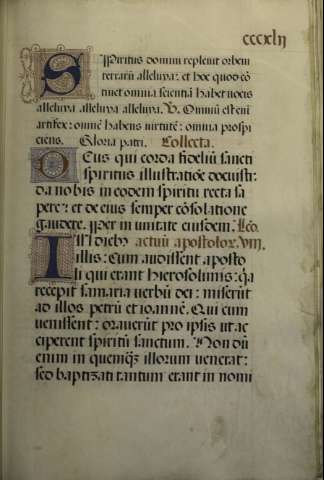 cccxlij
Spiritus domini repleuit orbem
terrarũ alleluya: et hoc quod cõ
tinet omnia scientiã habet uocis
alleluya alleluya alleluya. V. Omniũ est eni
artifex: omnẽ habens uirtutẽ: omnia prospi
ciens. Gloria patri. Collecta.
Deus qui corda fideliũ sancti
spiritus illustratiõe docuisti:
da nobis in eodem spiritu recta sa
pere: et de eius semper cõsolatione
gaudere. Per in unitate eiusdem. Lco.
In dieb9 actuũ apostolor. VIII.
illis: Cum audissent aposto
li qui erant hierosolimis: q̃a
recepit samaria uerbũ dei: miserũt
ad illos petrũ et ioannẽ. Qui cum
uenissent: orauerũt pro ipsis ut ac
ciperent spiritũ sanctum. Non dũ
enim in quemq̃ illorum uenerat:
sed baptizati tantum erant in nomi